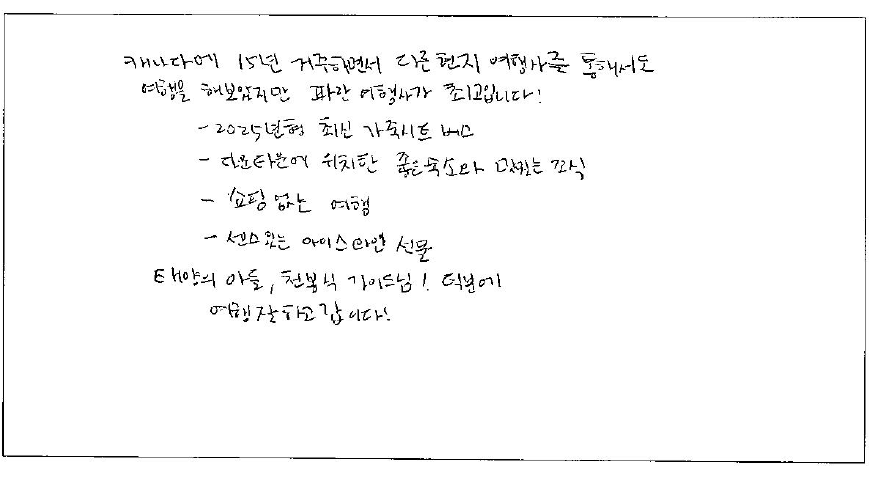 캐나다에 15년 거주하면서 다른 현지 여행사를 통해서도
여행을 해보았지만 파란 여행사가 최고입니다!
- 2025년형 최신 가죽시트 버스
- 다운타운에 위치한 좋은숙소와 맛있는 조식
- 쇼핑 없는 여행
- 센스있는 아이스와인 선물
태양의 아들, 천봉식 가이드님! 덕분에
여행잘하고갑니다!